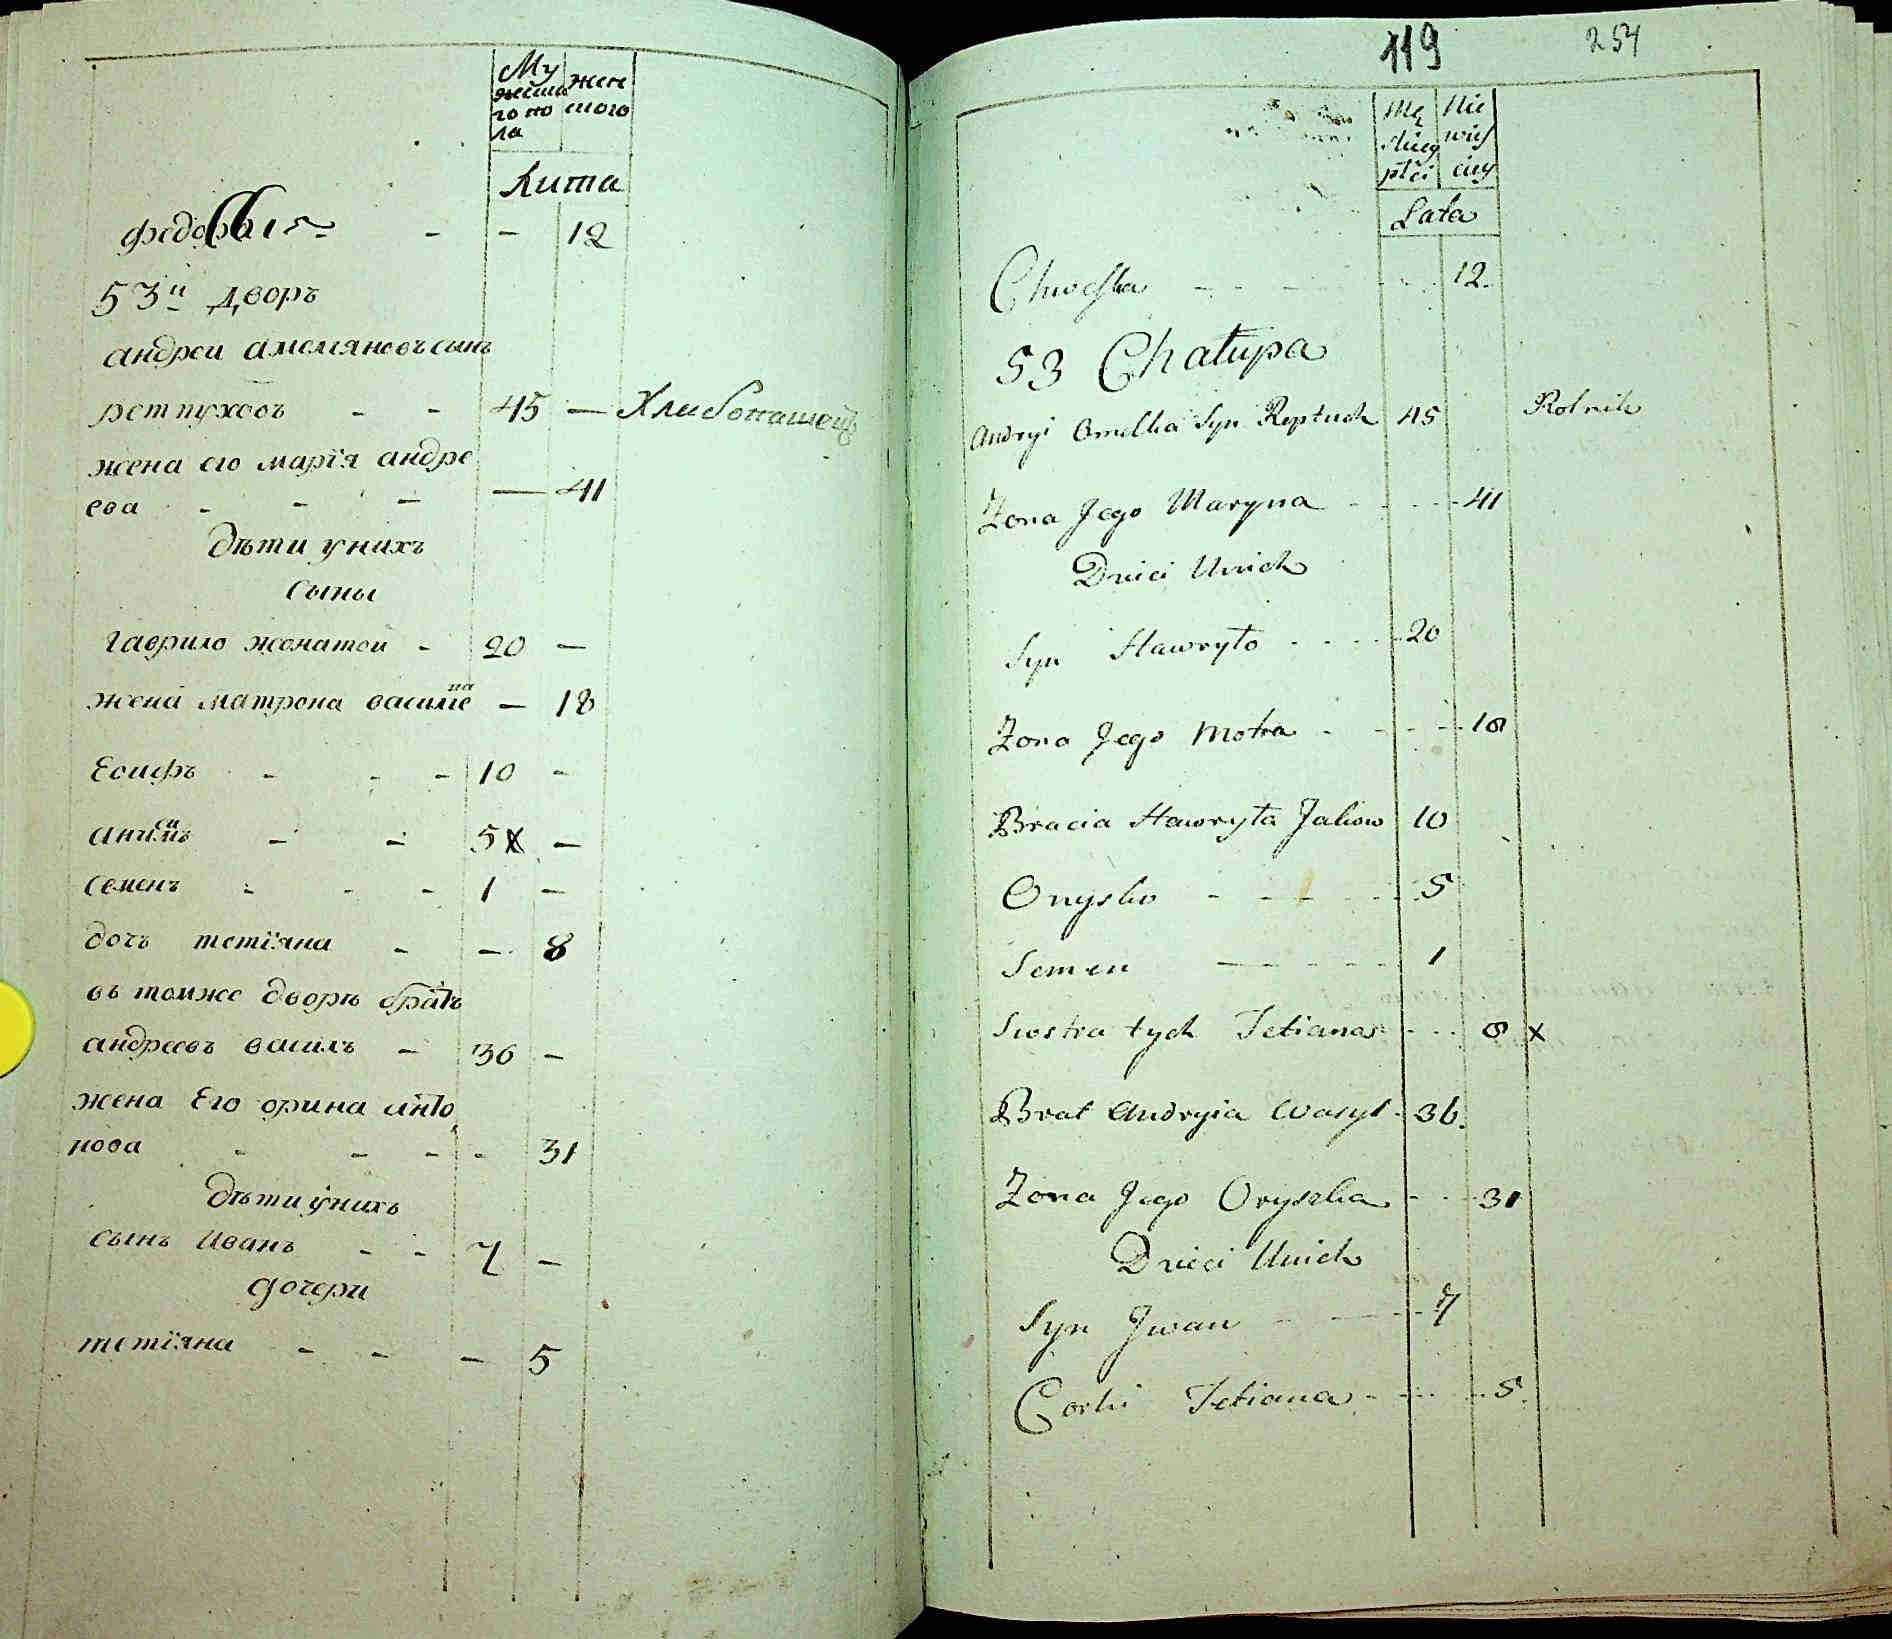 Му жеска го по ла
жен ского
Лита
12
53й дворъ
андреи амелянювъ сынъ
рептуховъ - - 45 — Хлибопашецъ
жена его марїя андре
ева - - - — 41
дѣти у нихъ
сыны
гаврило жонатой - 20 —
жена матрона василева — 18
Есифъ - - - 10 -
5 —
семенъ - - - 1 —
дочь тетїяна - — 8
въ томже дворѣ братъ
андреевъ василъ - 36 —
жена Его орина анто
нова - - - - 31
дѣти у нихъ
сынъ иванъ - - 7 —
дочери
тетїяна - - - 5
119 254
Mę skiey płci
Nie wieś ciey
Lata
Chweśka 12.
53 Chałupa
Andryi Omelka Syn Reptuch 45 Rolnik
Żona Jego Maryna 41
Dzieci Unich
Syn Hawryło 20
Żona Jego Motra 18
Bracia Hawryła Jakow 10
Onysko 5
Semen 1
Siostra tych Tetiana 8 x
Brat Andryia Wasyl 36.
Żona Jego Oryszka 31
Dzieci Unich
Syn Jwan 7
Corki Tetiana 5.